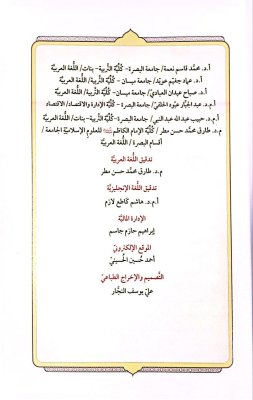 أ.د. محمّد قاسم نعمة/ جامعة البصرة- كُلّيّة التَّربية- بنات/ اللُّغة العربيّة
أ.د. عماد جغيم عويد/ جامعة ميسان- كُلّيّة التَّربية/ اللُّغة العربيّة
أ.د. صباح عيدان العبادي/ جامعة ميسان - كُلّيّة التَّربية/ اللُّغة العربيّة
أ.م.د. عبد الجبّار عبّود الحلفي/ جامعة البصرة - كُلّيّة الإدارة والاقتصاد/ الاقتصاد
أ.م.د. حبيب عبد الله عبد النبي/ جامعة البصرة- كُلّيّة التَّربية- بنات/ اللُّغة العربيّة
م.د. طارق محمّد حسن مطر / كُلّيّة الإمام الكاظم للعلوم الإسلاميّة الجامعة /
أقسام البصرة / اللُّغة العربيّة
تدقيق اللُّغة العربيّة
م.د. طارق محمّد حسن مطر
تدقيق اللُّغة الإنجليزيّة
أ.م.د. هاشم كاطع لازم
الإدارة الماليّة
إبراهيم حازم جاسم
الموقع الإلكتروني
أحمد حُسين الحُسيني
التَّصميم والإخراج الطباعي
علي يوسف النجّار